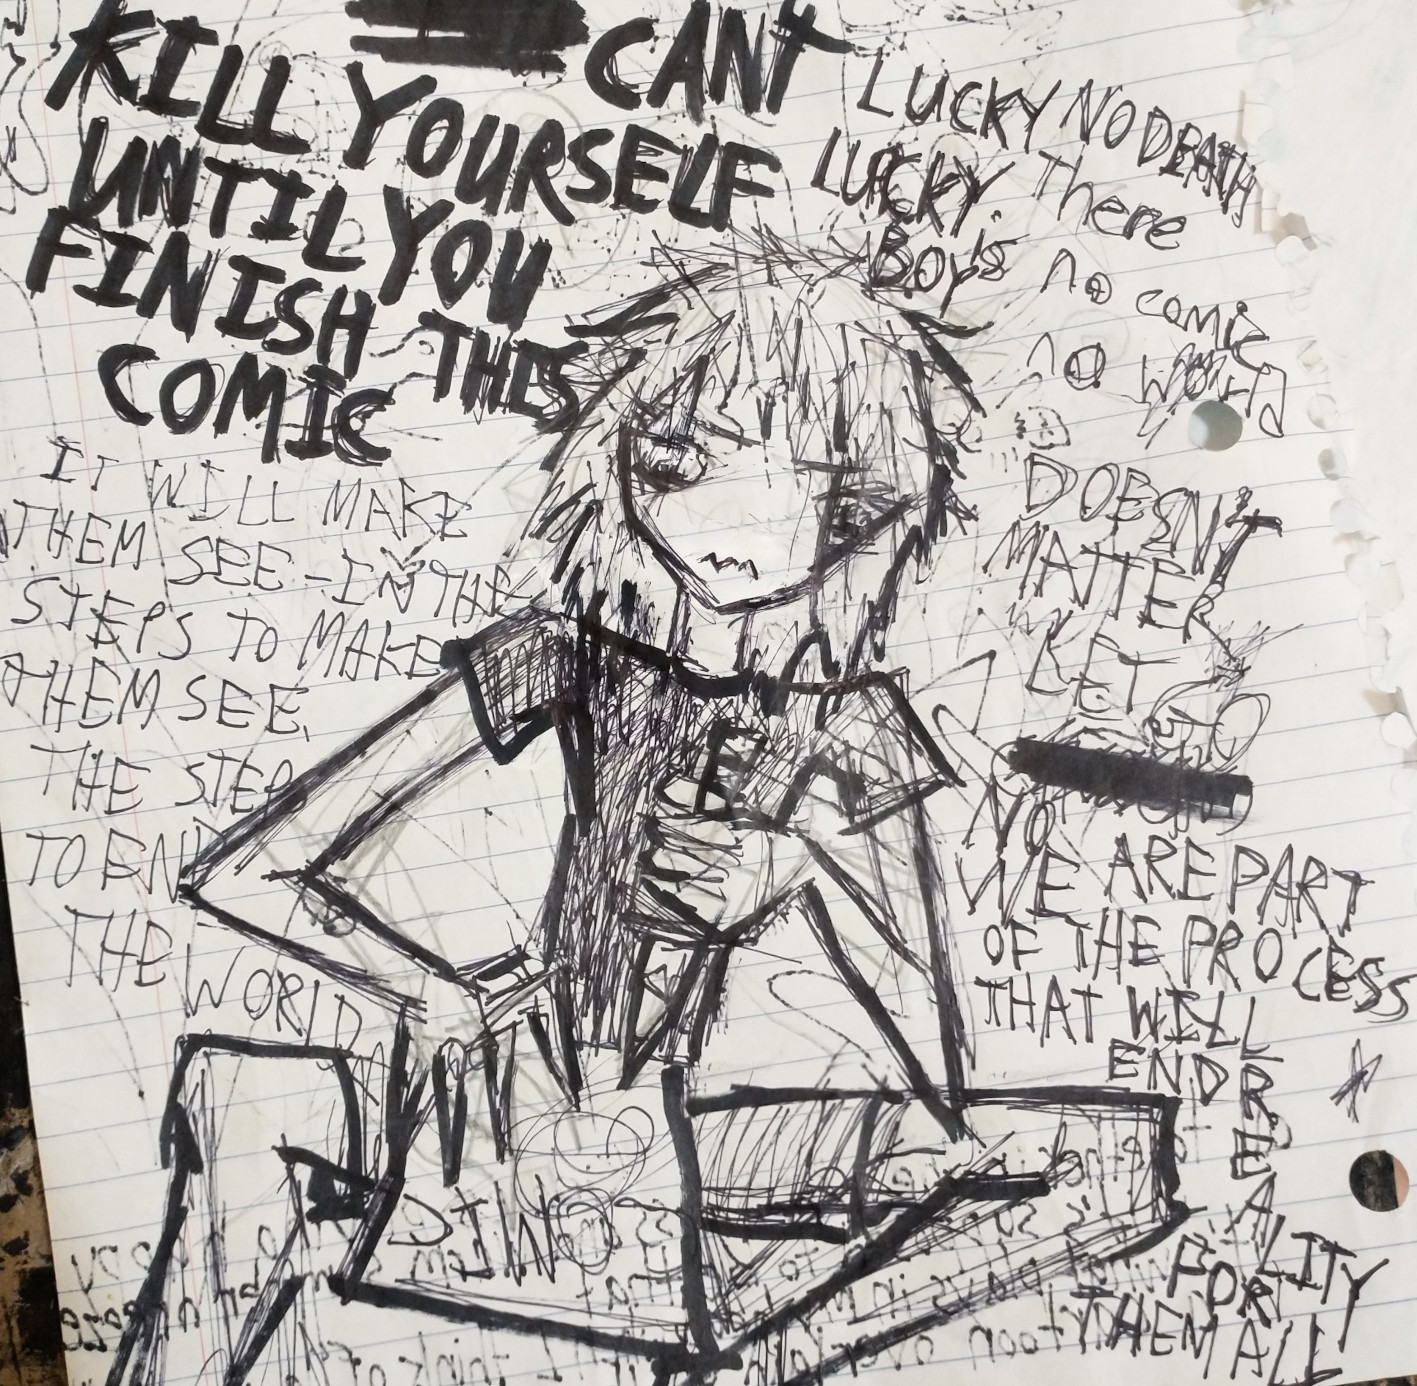 CANT
KILL YOURSELF
UNTIL YOU
FINISH THIS
COMIC
IT WILL MAKE
THEM SEE - IN THE
STEPS TO MAKE
THEM SEE,
THE STEP
TO END
THE WORLD
LUCKY NO DEATH
LUCKY. There
Boy's no comic
no world
DOESN'T
MATTER
LET GO
NO
WE ARE PART
OF THE PROCESS
THAT WILL
END REALITY
FOR
THEM ALL
E